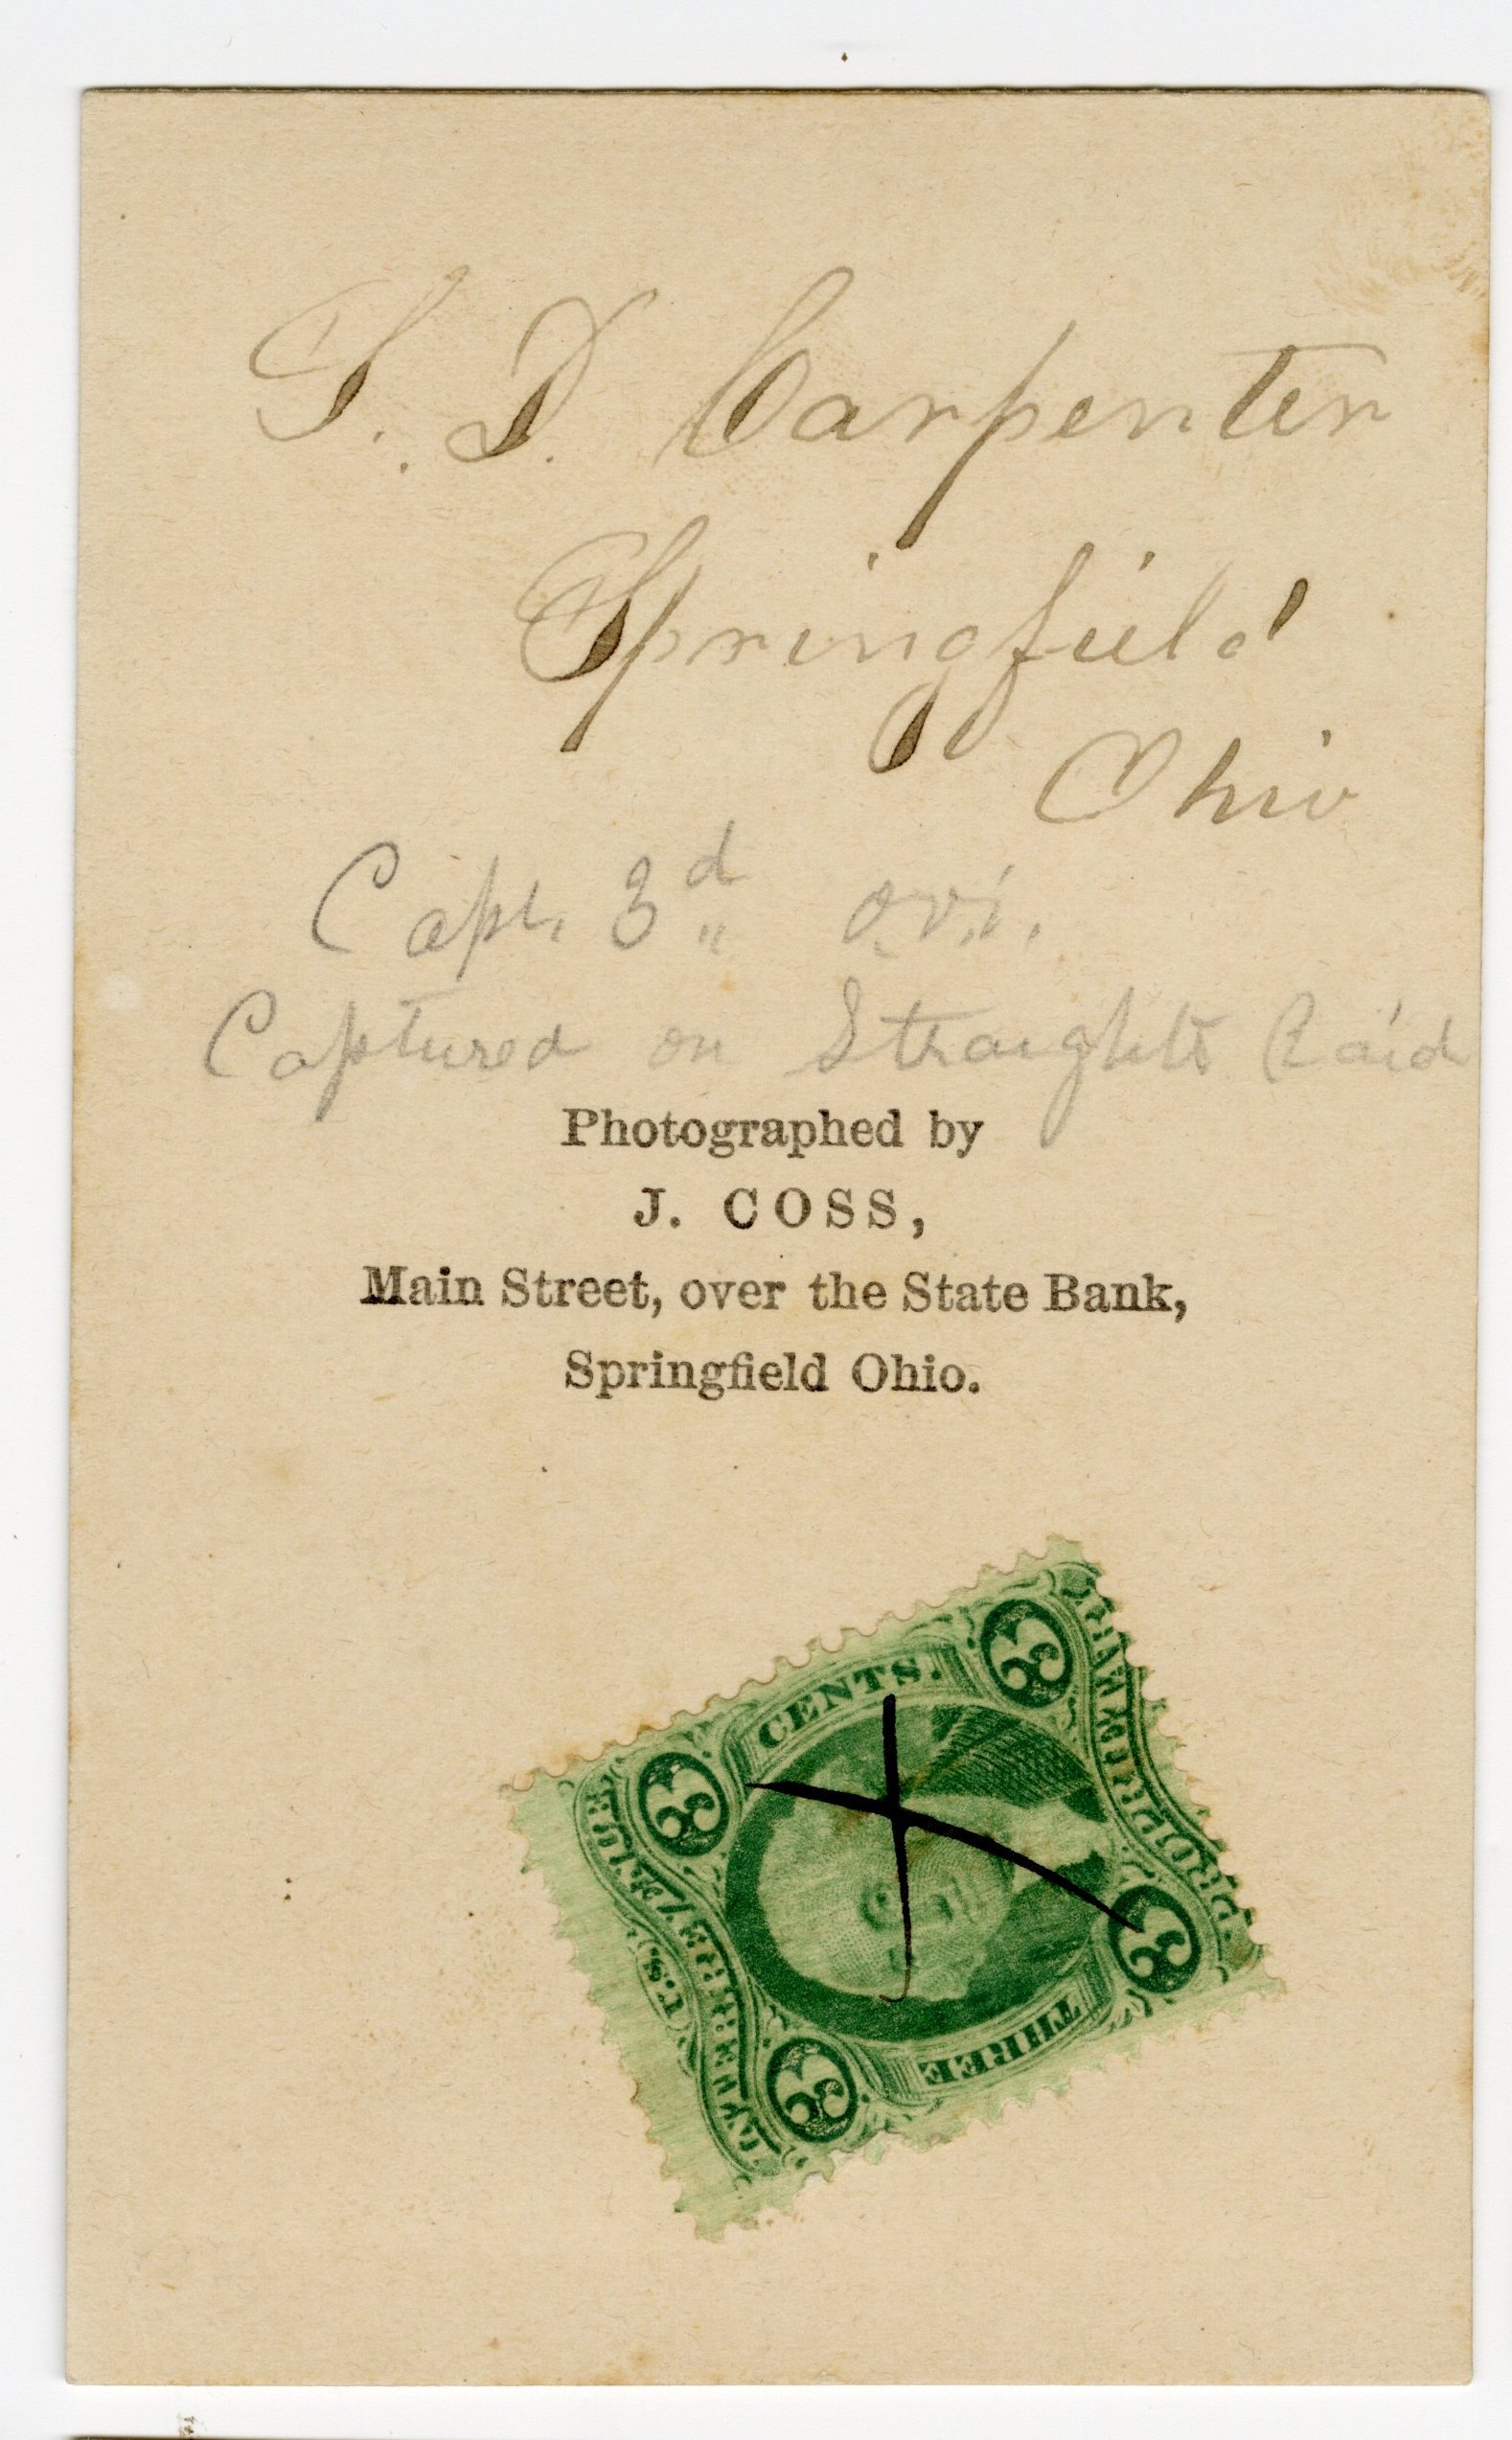 S. D. Carpenter
Springfield
Ohio
Capt. 3d o.v.i.
Captured on Straights Raid
Photographed by
J. COSS,
Main Street, over the State Bank,
Springfield Ohio.
3 CENTS. 3
INTER. REVENUE
U.S.
PROPRIETARY
3 THREE 3